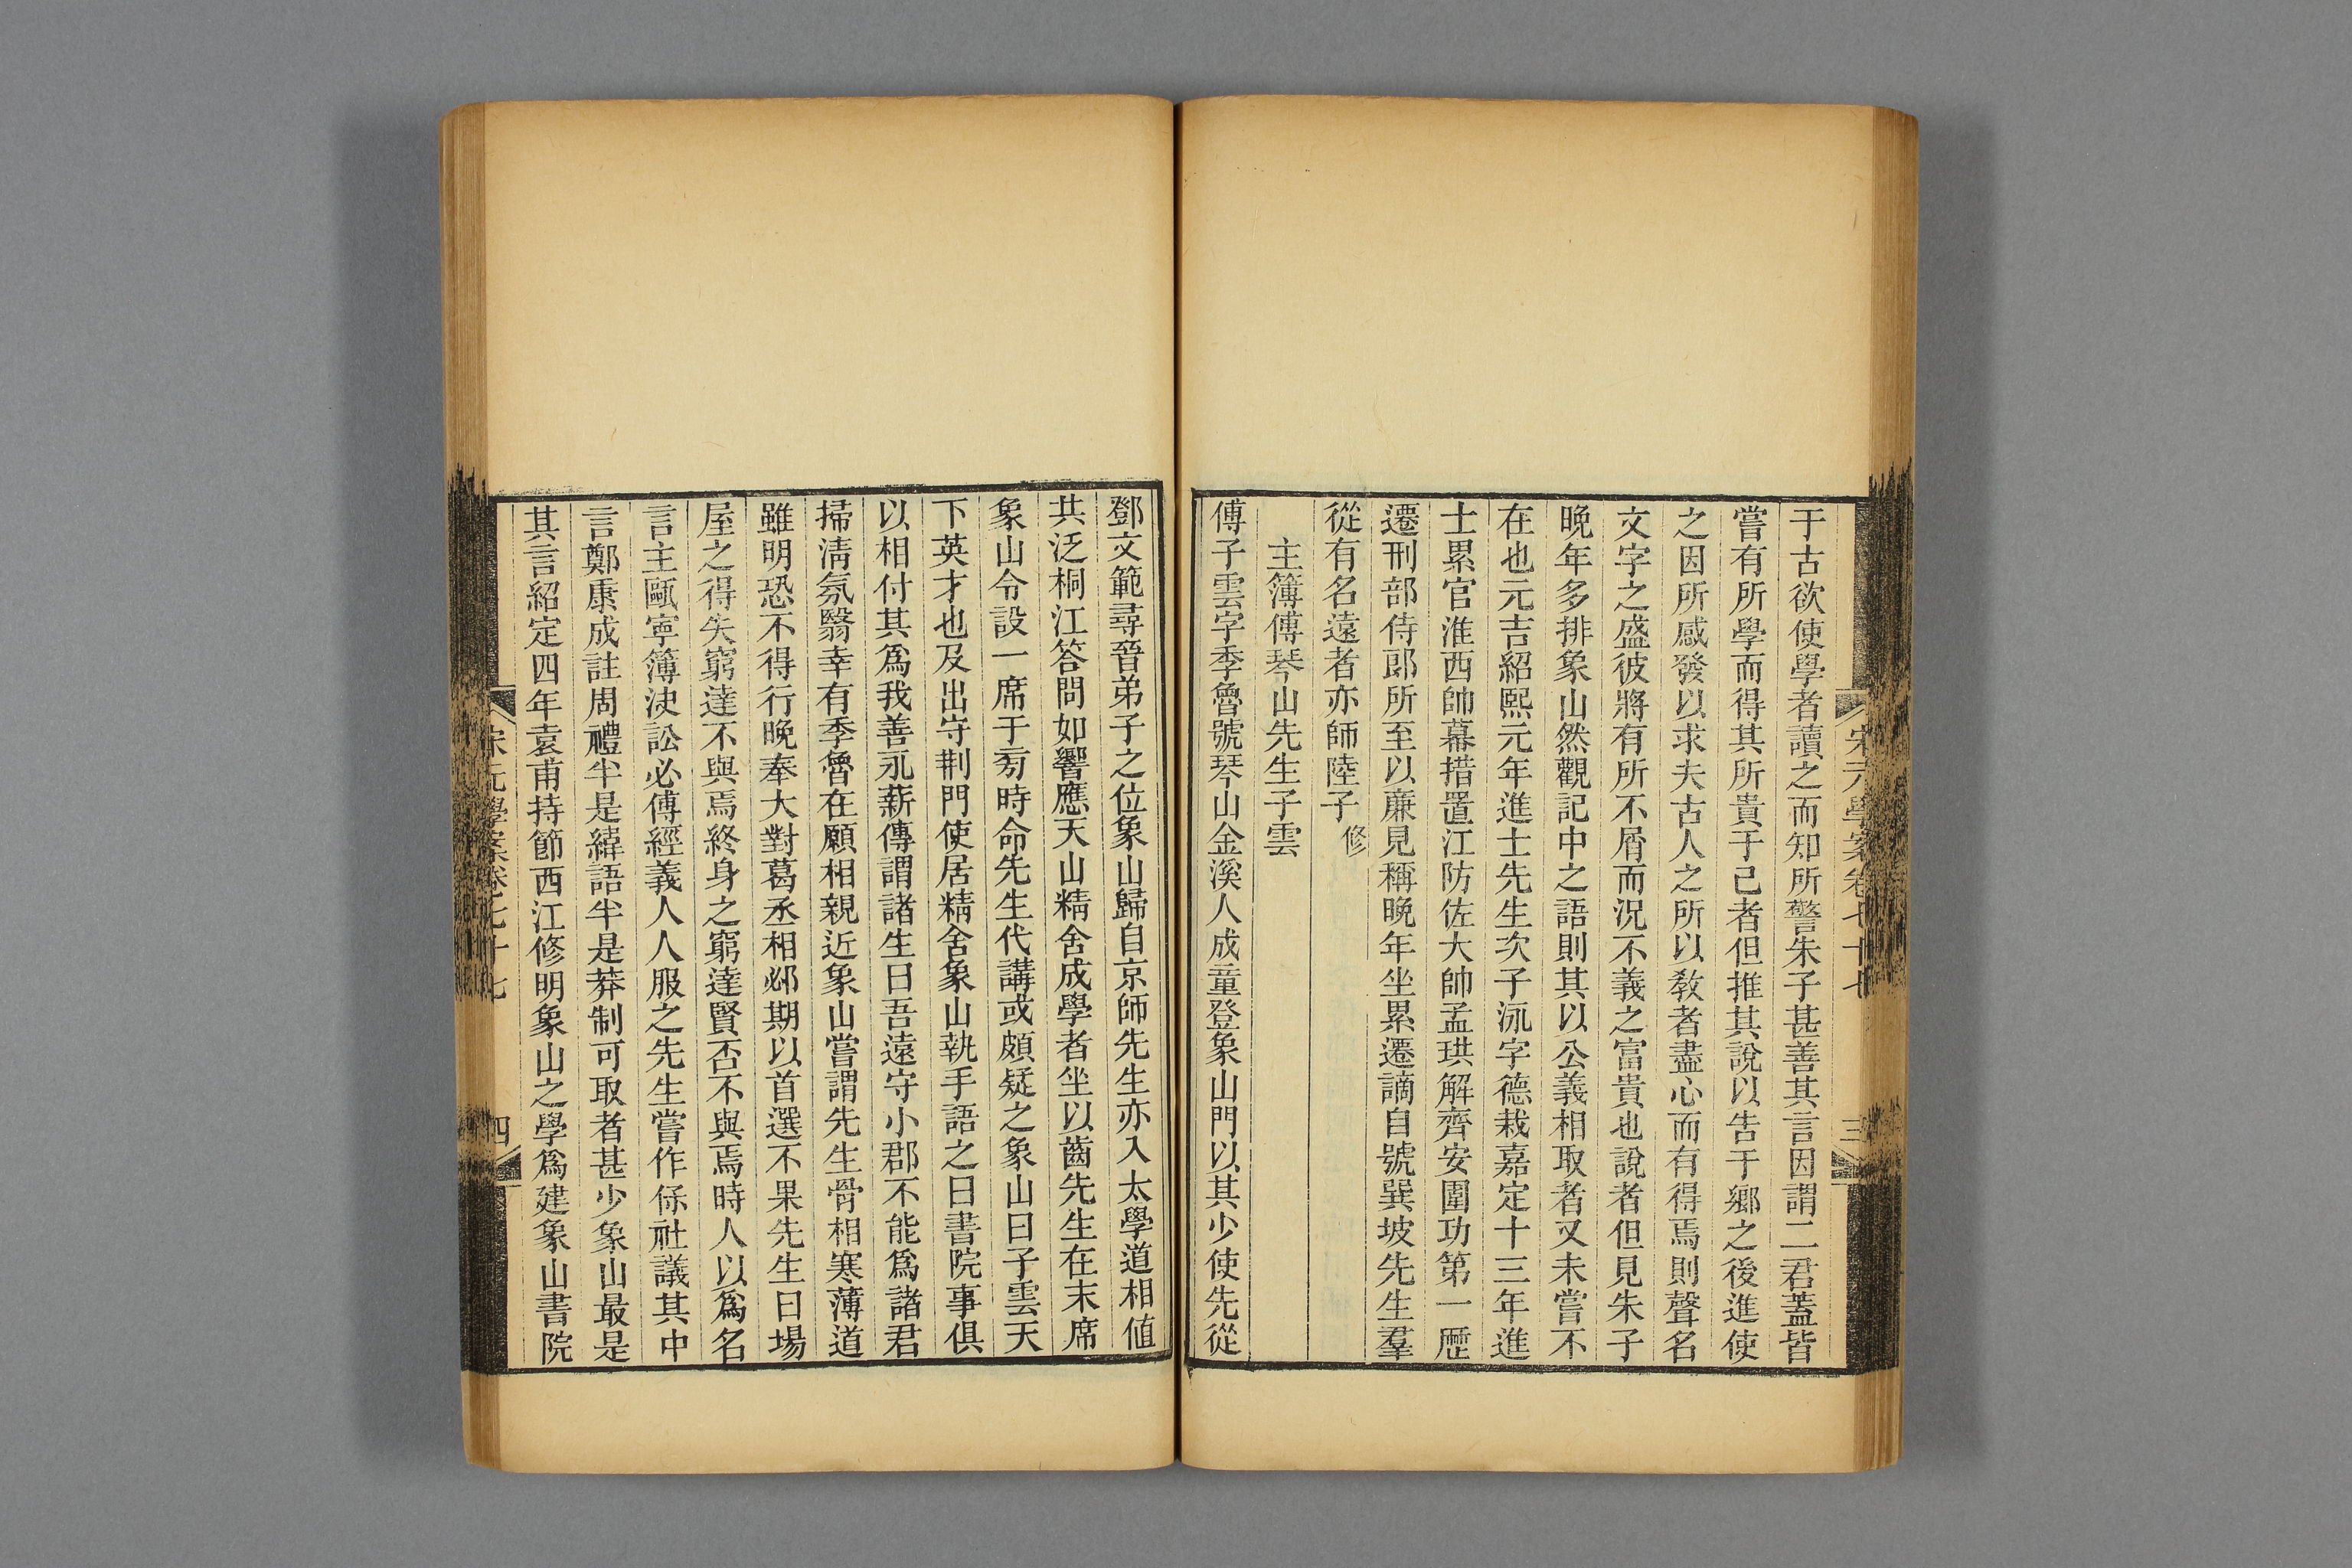 宋元學案卷七十七
三
于古欲使學者讀之而知所警朱子甚善其言因謂二君蓋皆
嘗有所學而得其所貴于己者但推其說以告于鄉之後進使
之因所感發以求夫古人之所以敎者盡心而有得焉則聲名
文字之盛彼將有所不屑而況不義之富貴也說者但見朱子
晚年多排象山然觀記中之語則其以公義相取者又未嘗不
在也元吉紹熙元年進士先生次子泳字德栽嘉定十三年進
士累官淮西帥幕措置江防佐大帥孟珙解齊安圍功第一歷
遷刑部侍郎所至以廉見稱晚年坐累遷謫自號巽坡先生羣
從有名遠者亦師陸子修
主簿傅琴山先生子雲
傅子雲字季魯號琴山金溪人成童登象山門以其少使先從
鄧文範尋晉弟子之位象山歸自京師先生亦入太學道相値
共泛桐江答問如響應天山精舍成學者坐以齒先生在末席
象山令設一席于㫄時命先生代講或頗疑之象山曰子雲天
下英才也及出守荆門使居精舍象山執手語之曰書院事俱
以相付其爲我善永薪傳謂諸生曰吾遠守小郡不能爲諸君
掃淸氛翳幸有季魯在願相親近象山嘗謂先生骨相寒薄道
雖明恐不得行晚奉大對葛丞相邲期以首選不果先生曰場
屋之得失窮達不與焉終身之窮達賢否不與焉時人以爲名
言主甌寧簿決訟必傅經義人人服之先生嘗作保社議其中
言鄭康成註周禮半是緯語半是莽制可取者甚少象山最是
其言紹定四年袁甫持節西江修明象山之學爲建象山書院
宋元學案卷七十七
四